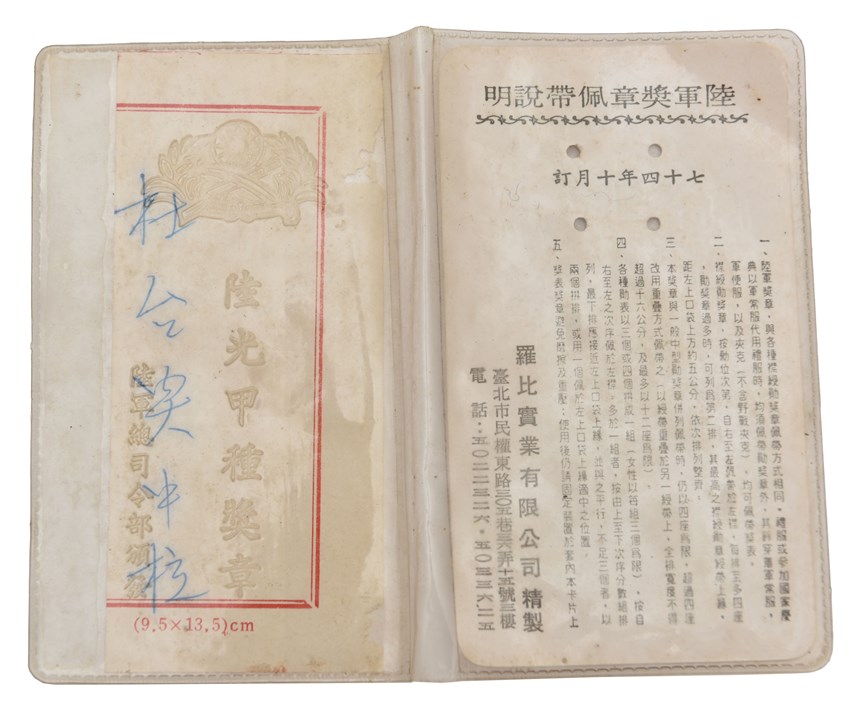 陸軍獎章佩帶說明
七十四年十月訂
一、陸軍獎章，與各種襟綬勳章佩帶方式相同，禮服或參加國家慶
典以軍常服代用禮服時，均須佩帶勳獎章外，其餘穿著軍常服，
軍便服，以及夾克（不含野戰夾克），均可佩帶獎表。
二、襟綬勳獎章，按勳位次第，自右至左佩帶於左襟，每排至多四座
，勳獎章過多時，可列為第二排，其最高之襟綬勳章綬帶上緣，
距左上口袋上方約五公分，依次排列整齊。
三、本獎章與一般中型勳獎章併列佩帶時，仍以四座為限，超過四座
改用重疊方式佩帶之（以綬帶重疊於另一綬帶上，全排寬度不得
超過十六公分，及最多以十二座為限）。
四、各種勳表以三個或四個拼成一組（女性以每組三個為限），按自
右至左之次序佩於左襟，多於一組者，按由上至下次序分數組排
列，最下排應接近左上口袋上緣，並與之平行，不足三個者，以
兩個拼排，或用一個佩於左上口袋上緣適中之位置。
五、獎表獎章避免磨擦及重壓；使用後仍請固定裝置於套內本卡片上
羅比實業有限公司精製
臺北市民權東路三〇五巷
電話：五〇二二三二六．五〇三三六二五
陸光甲種獎章
陸軍總司令部頒發
杜台
(9.5×13.5)cm